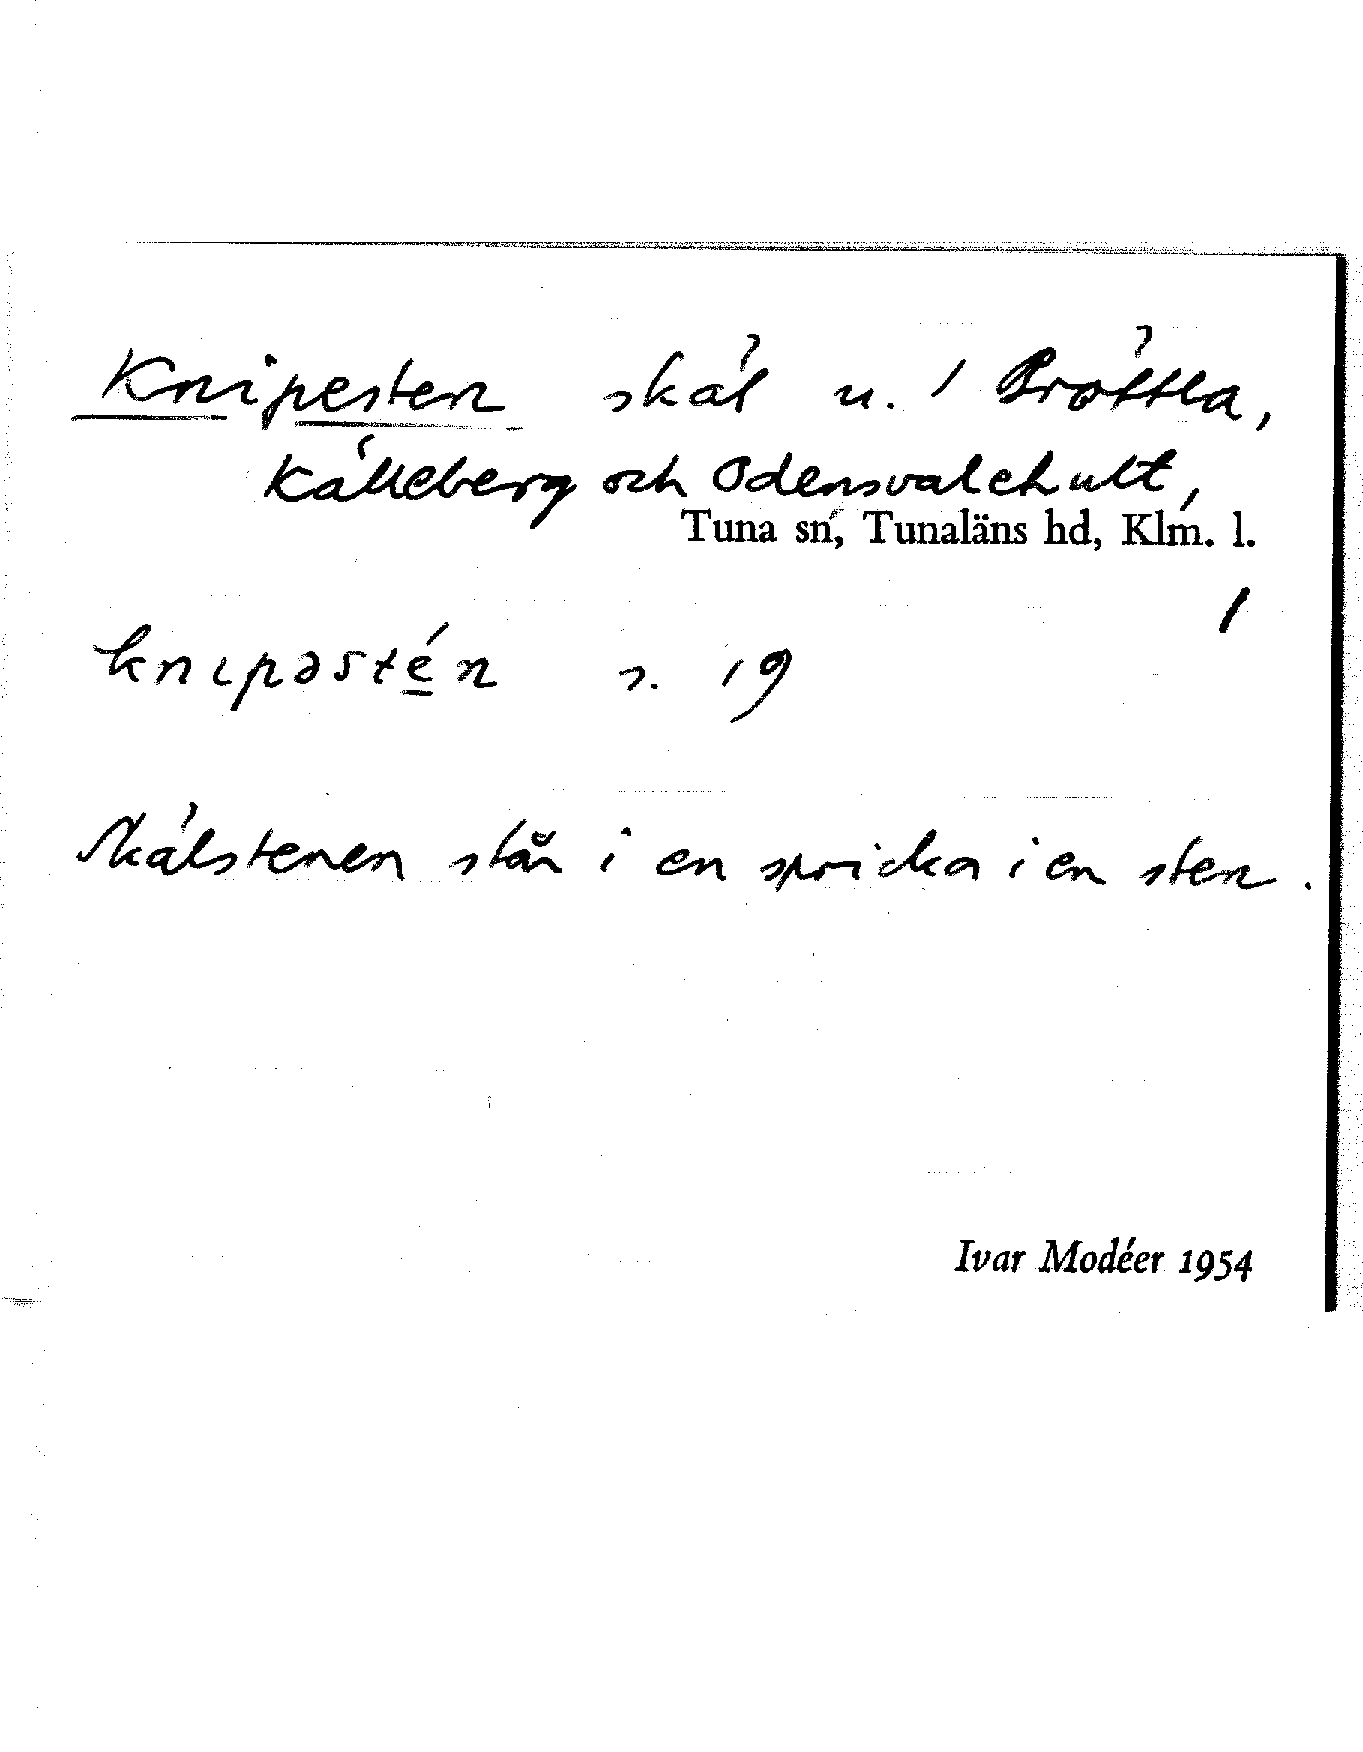 Knipesten skäl u. 1 Bröttla,
Källeberg och Odensvalehult,
Tuna sn, Tunaläns hd, Klm. l.
1
knɩpəstén s. 19
Skälstenen står i en spricka i en sten.
Ivar Modéer 1954